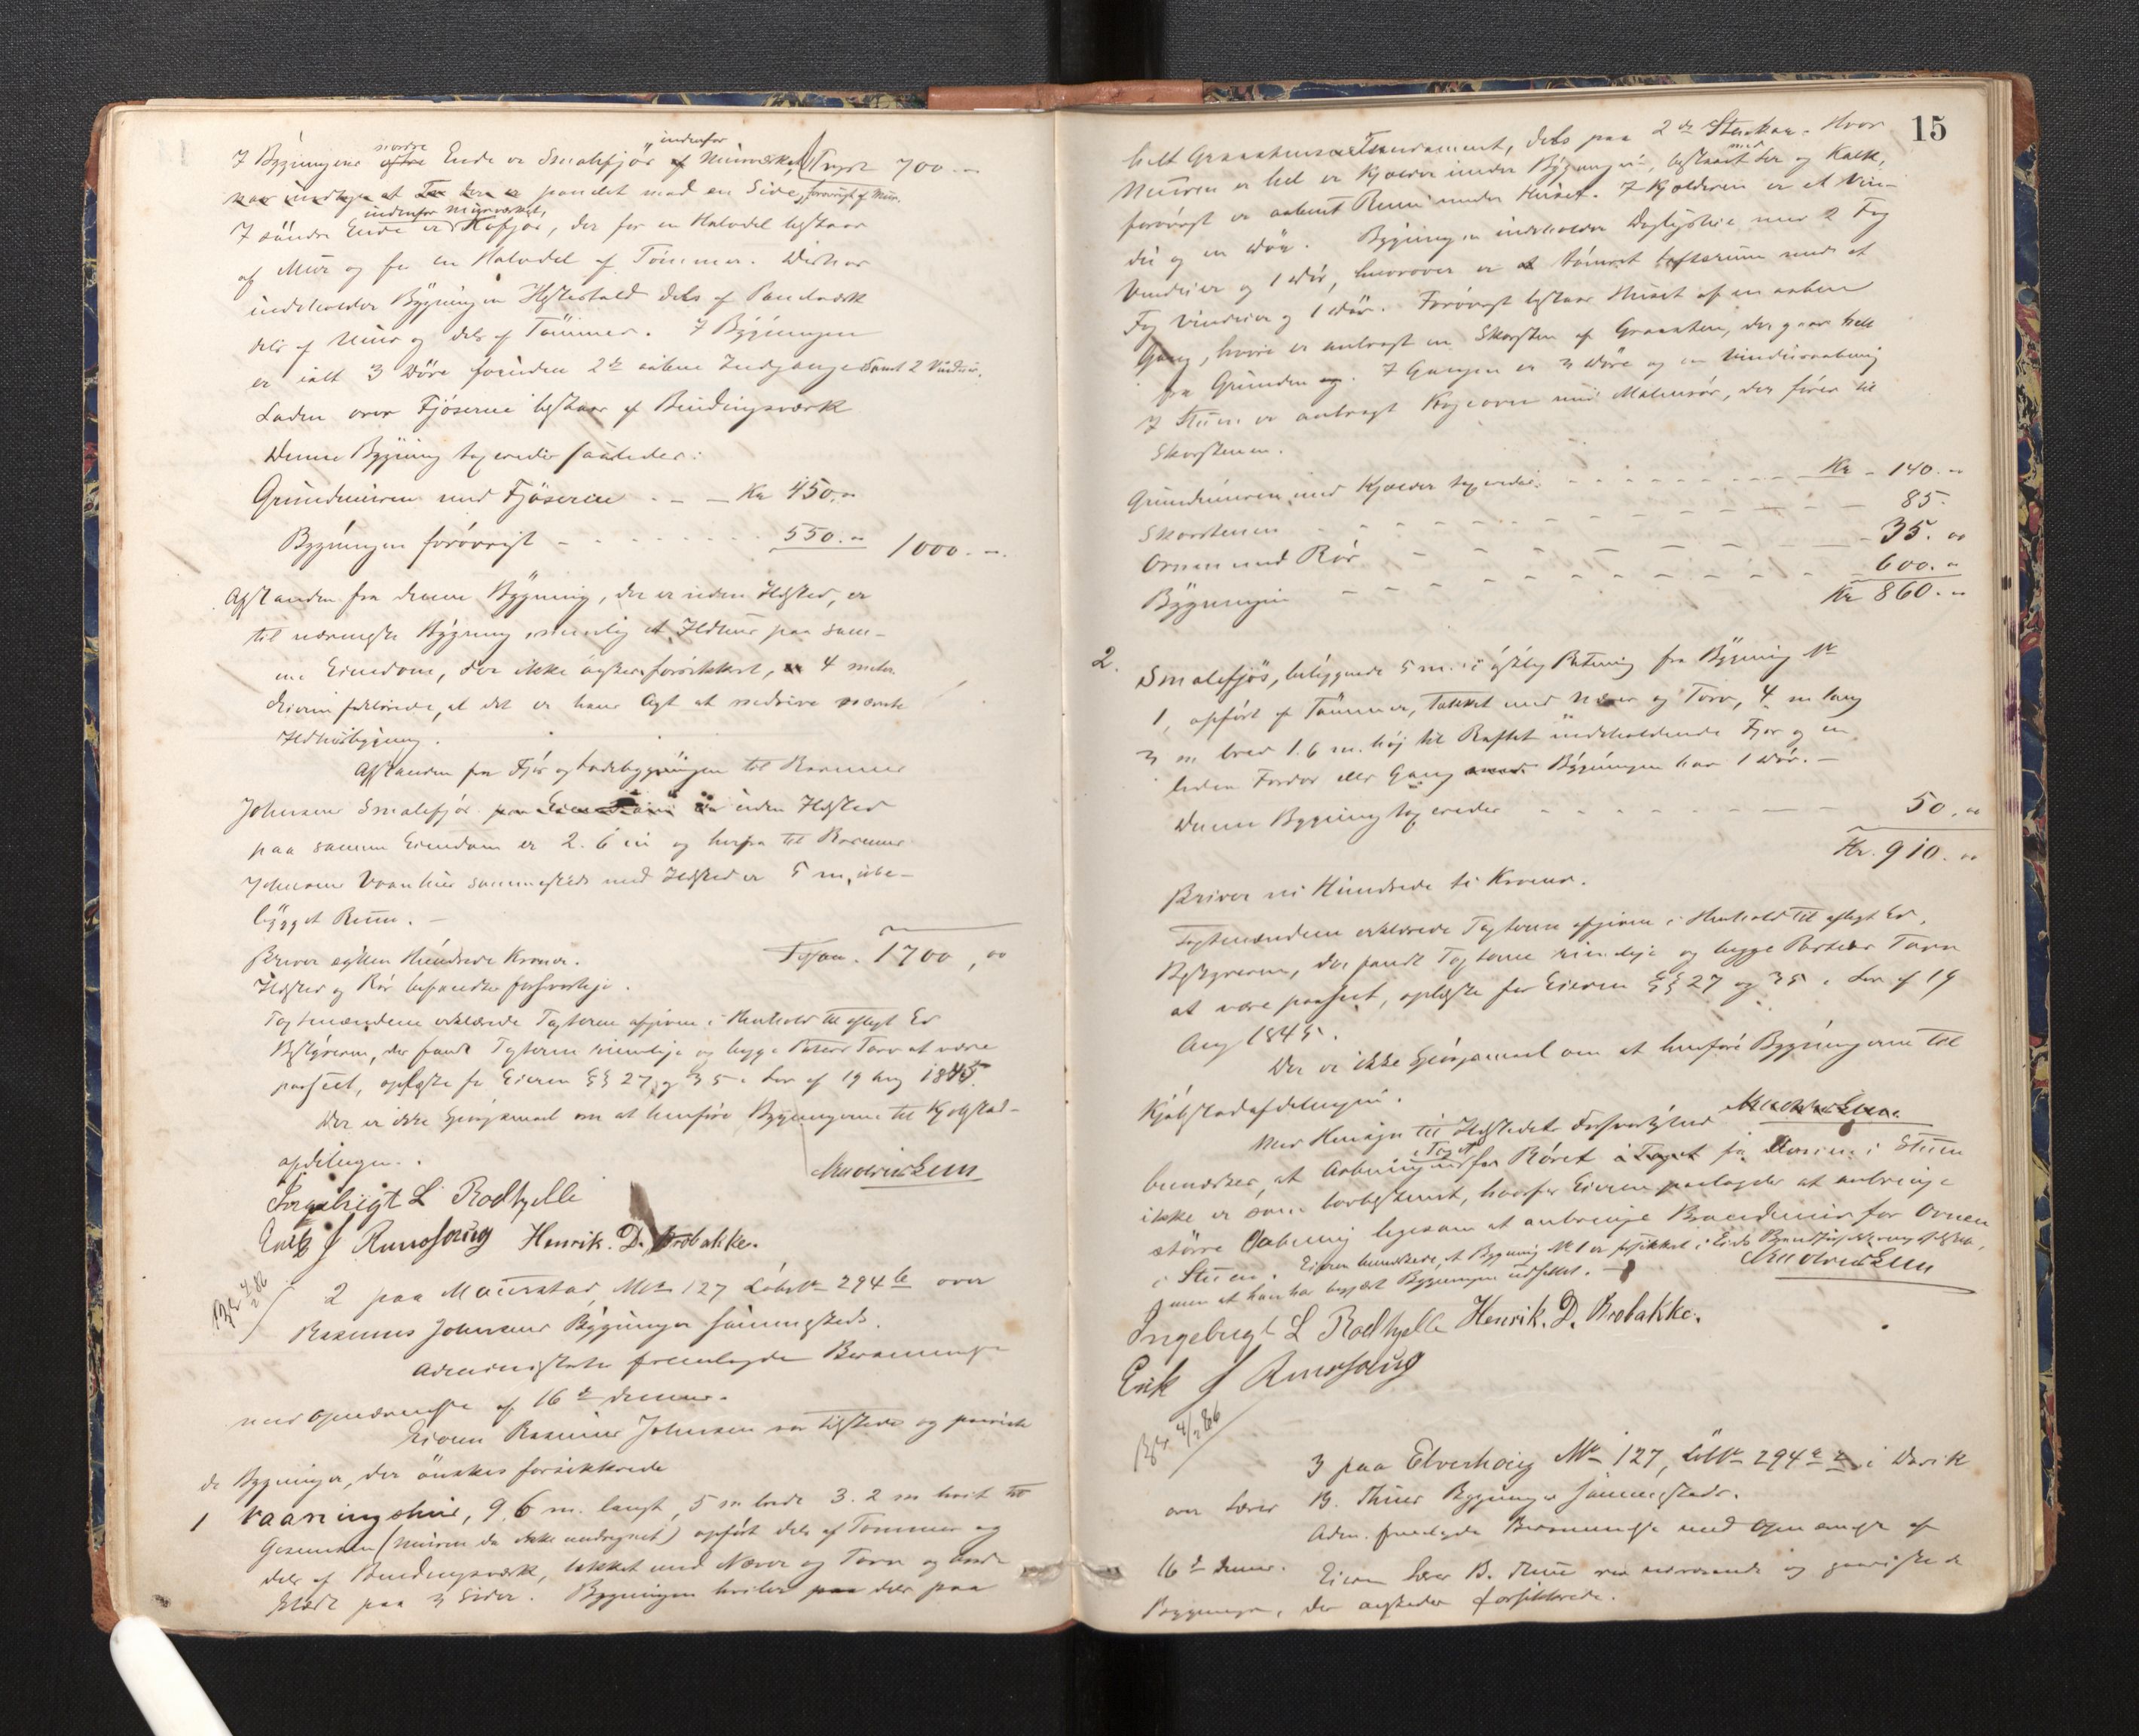 I Bygningens nordre Ende er Smalefjøs indenfor Murværket, Trpt 700. "
paa en Side, forøvrigt af Mur.
I søndre Ende er indenfor Murværket, Kofjøs, der for en Halvdel bestaar
af Mur og for en Halvdel af Tømmer. Videre
indeholder Bygningen Hestestald dels af
dels af Mur og dels af Tømmer. I Bygningen
er ialt 3 Døre foruden 2de aabne Indgange samt 2 Vinduer.
Laden over Fjøsene bestaar af Bindingsværk
Denne Bygning taxeredes saaledes:
Grundmuren med Fjøsene - - - Kr 450. "
Bygningen forøvrigt - - - - 550. " 1000. "
Afstanden fra denne Bygning, der er uden Ildsted, er
til nærmeste Bygning nemlig et Ildhus paa sam-
me Eiendom, der ikke ønskes forsikkret, 4 meter.
Eieren forklarede, at det er hans Agt at nedrive nævnte
Ildhusbygning.
Afstanden fra Fjøs og Ladebygningen til Rasmus
Johnsens Smalefjøs uden Ildsted
paa samme Eiendom er 2.6 m og herfra til Rasmus
Johnsens Vaanhus sammesteds med Ildsted er 5 m, ube-
bygget Rum. -
Skriver sytten Hundrede Kroner. Tilsam. 1700,00
Ildsted og Rør befandtes forsvarlige.
Taxtmændene erklærede Taxterne afgivne i Henhold til aflagt Ed
Bestyreren, der fandt Taxterne rimelige og begge Parters Tarv at være
paaseet, oplæste for Eieren §§ 27 og 35 i Lov af 19 Aug 1845.
Der er ikke Spørgsmaal om at henføre Bygningerne til Kjøbstad-
afdelingen.
Ingebrigt L Rodhjelle
Erik J Henrik. D. Brobakke.
4/2 86
2 paa Maurstad, Mtr 127 Løbnr 294 b over
Rasmus Johnsens Bygninger sammesteds.
Administrator fremlagde Berammelse
med Opnævnelse af 16de dennes.
Eieren Rasmus Johnsen var tilstede og paaviste
de Bygninger, der ønskes forsikkrede
1 Vaaningshus, 9.6 m. langt, 5 m brede 3.2 m høit til
Gesimsen (Muren da ikke medregnet) opført dels af Tømmer og
dels af Bindingsværk, tækket med Næver og Torv og bord-
klædt paa 3 Sider. Bygningen hviler dels paa
15
helt Graastens Fundament, dels paa 2de Stenkar. Hvor
Muren er hel er Kjælder under Bygningen, bestaaet med Ler og Kalk,
forøvrigt er aabent Rum under Huset. I Kjælderen er et Vin-
du og en Dør. Bygningen indeholder Dagligstue med 2 Fag
Vinduer og 1 Dør, hvorover er tømret Loftsrum med et
Fag Vinduer og 1 Dør. Forøvrigt bestaar Huset af en aaben
Gang, hvori er anbragt en Skorsten af Graasten, der gaar helt
fra Grunden. I Gangen er 3 Døre og en Vinduesaabning
I Stuen er anbragt Kogeovn med Malmrør, der fører til
Skorstenen.
Grundmuren med Kjælder taxeredes - - - Kr - 140. "
Skorstenen - - - 85.
Ovnen med Rør - - - 35. "
Bygningen - - - 600. "
Kr 860. "
2. Smalefjøs, beliggende 5 m. i østlig Retning fra Bygning Nr
1, opført af Tømmer, tækket med Næver og Torv, 4 m lang
3 m bred 1.6 m. høj til Raftet indeholdende Fjøs og en
liden Fordør eller Gang. Bygningen har 1 Dør. -
Denne Bygning taxeredes - - - 50. "
Kr. 910. "
Skriver ni Hundrede ti Kroner.
Taxtmændene erklærede Taxterne afgivne i Henhold til aflagt Ed.
Bestyreren, der fandt Taxterne rimelige og begge Parters Tarv
at være paaseet, oplæste for Eieren §§ 27 og 35 i Lov af 19
Aug 1845.
Der er ikke Spørgsmaal om at henføre Bygningerne til
Kjøbstadafdelingen.
Med Hensyn til Ildstedets Forsvarlighed
bemærkes, at Aabningen i Taget for Røret fra Ovnen i Stuen
ikke er som lovbestemt, hvorfor Eieren paalagdes at anbringe
større Aabning ligesom at anbringe Brandmur for Ovnen
i Stuen. Eieren bemærkede, at Bygning No 1 er forsikkret i Eids
men at han har begjært Bygningen udslettet. -
Ingebrigt L Rodhjelle Henrik. D. Brobakke.
Erik J
4/2 86
3 paa Elverhøig Mtr 127, Løbnr 294 i Davik
over Lærer B. Thues Bygninger sammesteds.
Adm. fremlagde Berammelse med Opnævnelse af
16de dennes. Eieren Lærer B. Thue var nærværende og paaviste de
Bygninger, der ønskedes forsikkrede.